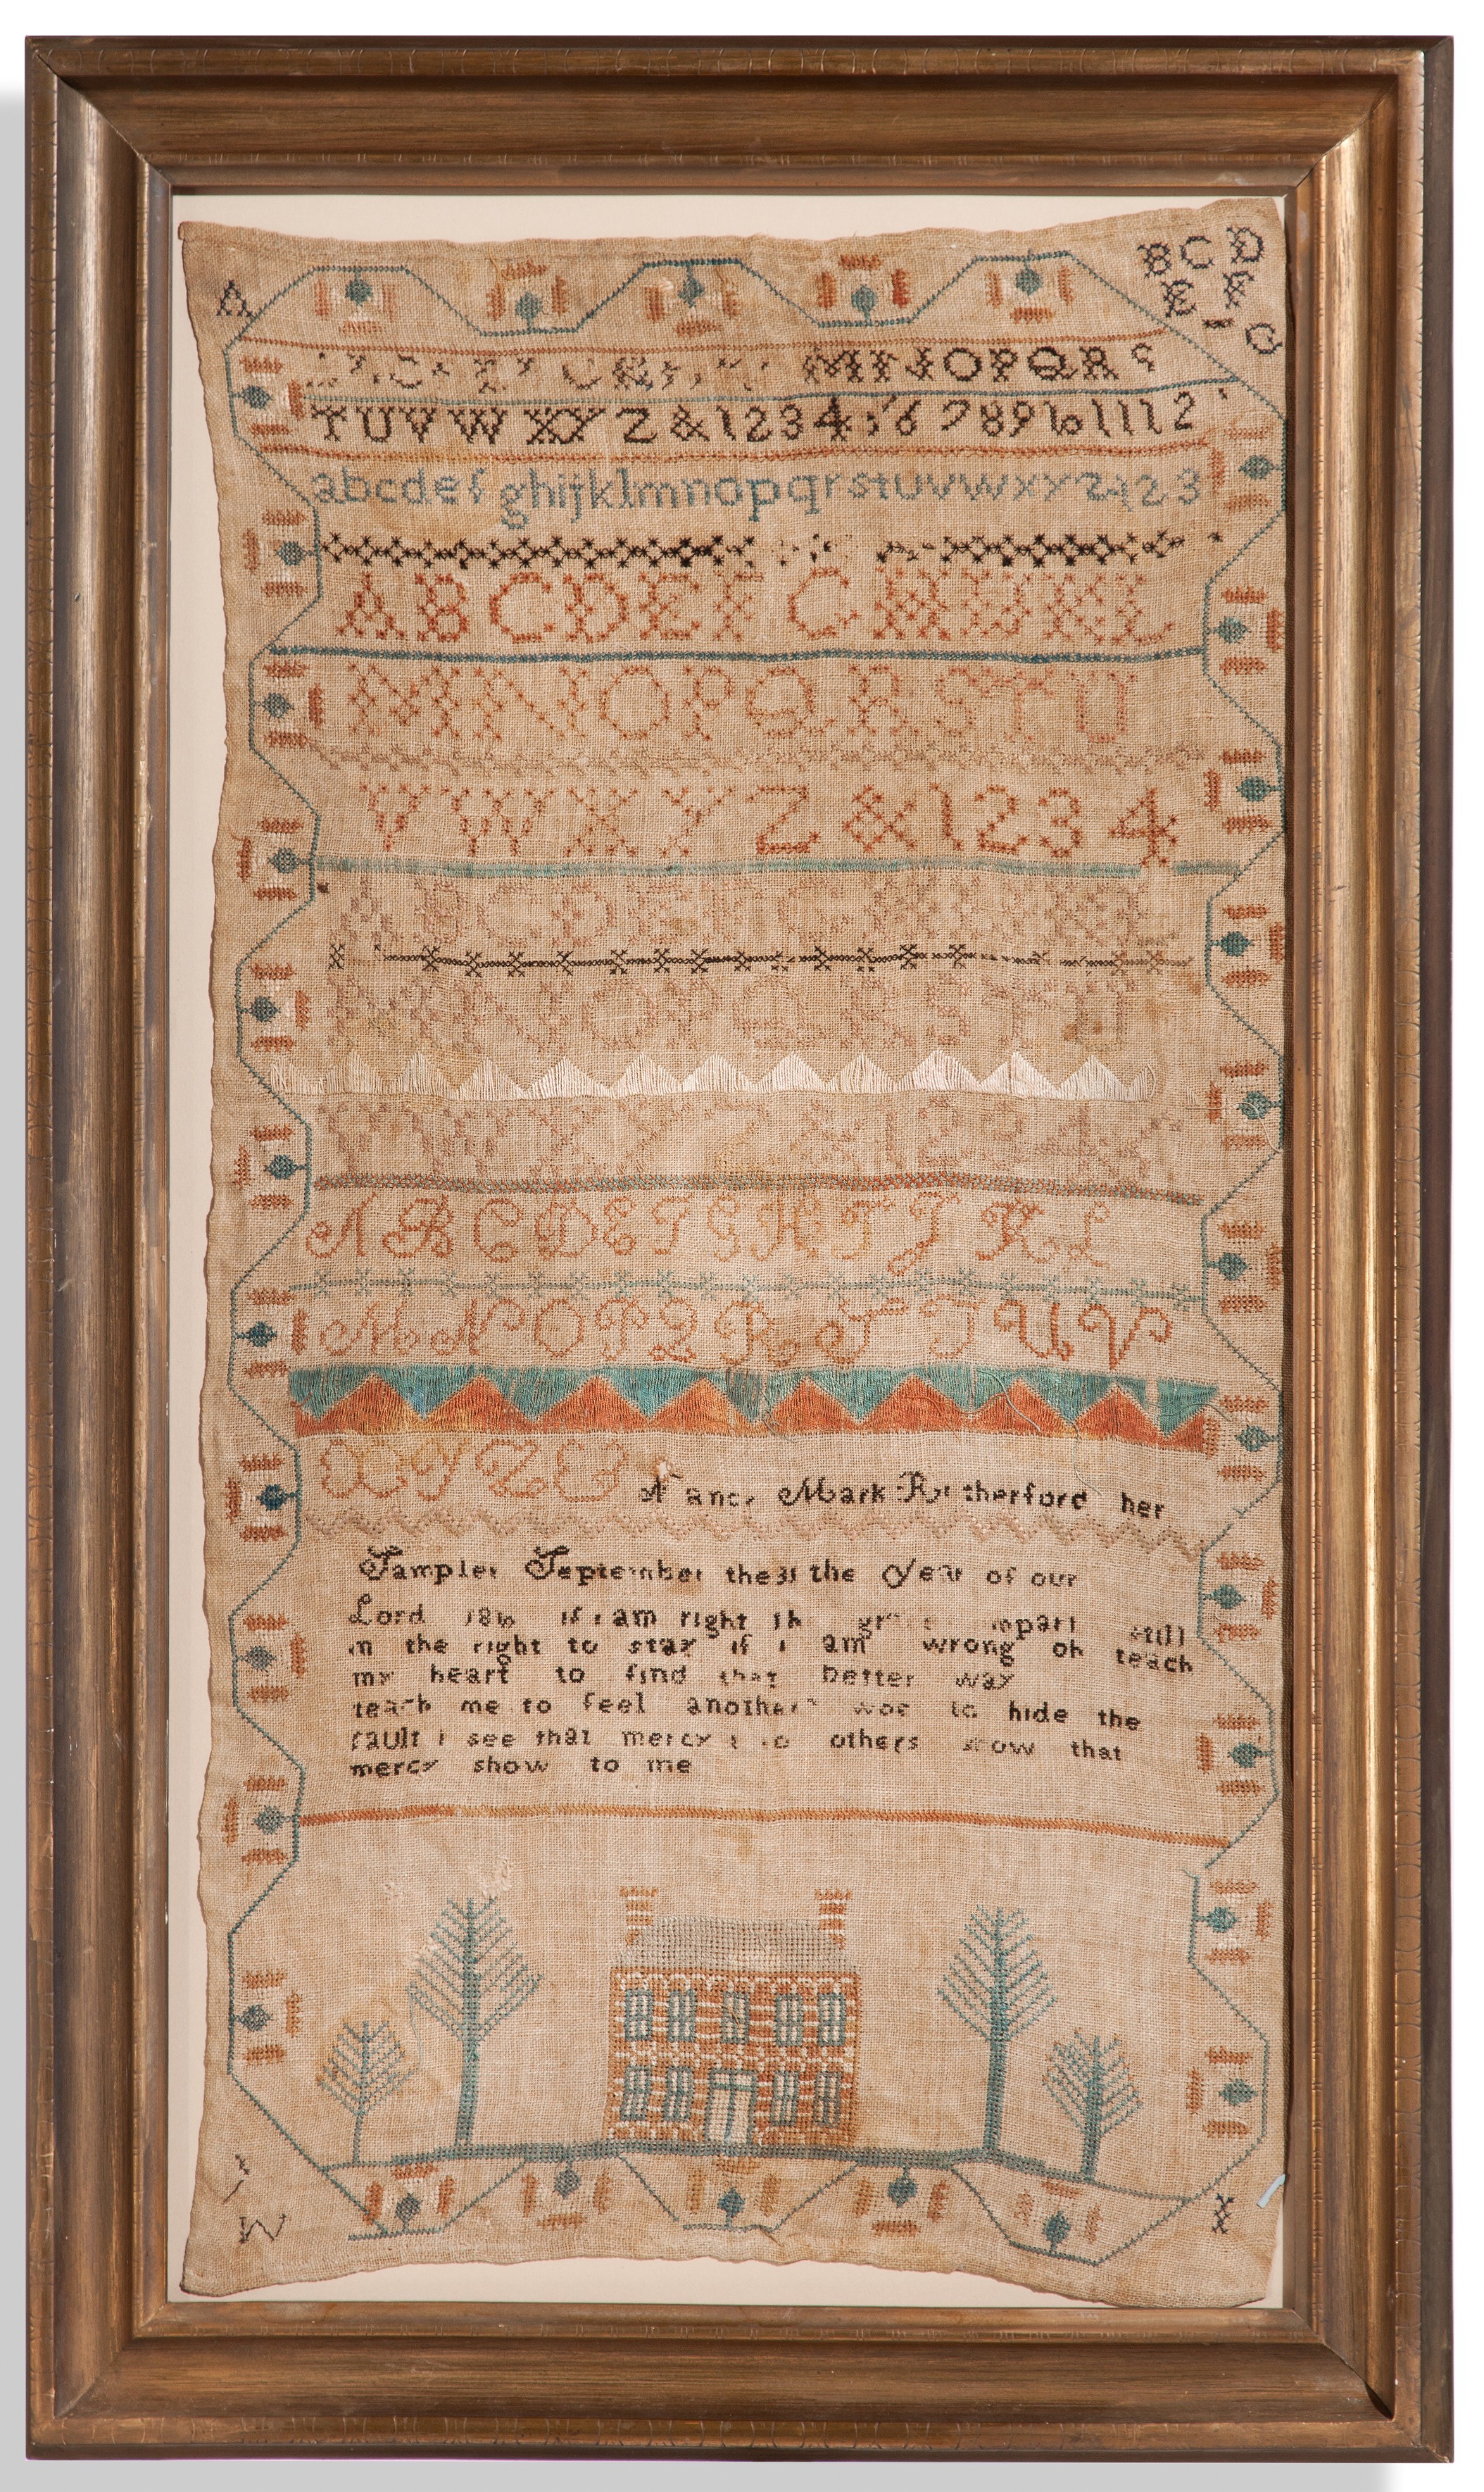 A
B C D
E F
G
M N O P Q R S
T U V W X Y Z & 1 2 3 4 5 6 7 8 9 10 11 12
a b c d e f g h i j k l m n o p q r s t u v w x y z 1 2 3
A B C D E F G H I K L
M N O P Q R S T U
V W X Y Z & 1 2 3 4
A B C D E F G H I K
M N O P Q R S T U
V W X Y Z & 1 2 3 4
A B C D E F G H I J K L
M N O P Q R S T U V
X Y Z & Nancy Mark Rutherford her
Sampler September the 31 the Year of our
Lord if i am right impart still
in the right to stay if i am wrong oh teach
my heart to find that better way
teach me to feel anothers woe to hide the
fault i see that mercy i to others show that
mercy show to me
W X